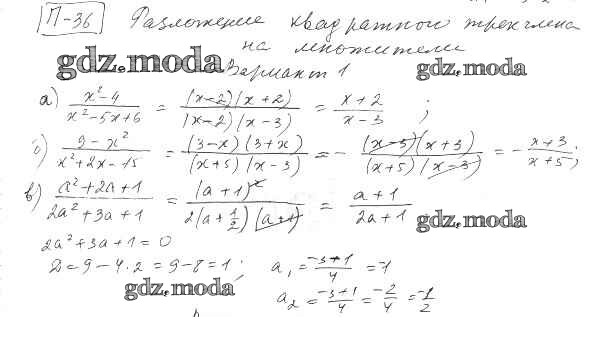 П-36 Разложение квадратного трехчлена
на множители
gdz.moda Вариант 1 gdz.moda
а) (x²-4)/(x²-5x+6) = ((x-2)(x+2))/((x-2)(x-3)) = (x+2)/(x-3) ;
б) (9-x²)/(x²+2x-15) = ((3-x)(3+x))/((x+5)(x-3)) = - ((x-3)(x+3))/((x+5)(x-3)) = - (x+3)/(x+5) ;
в) (a²+2a+1)/(2a²+3a+1) = (a+1)²/(2(a+1/2)(a+1)) = (a+1)/(2a+1) gdz.moda
2a²+3a+1=0
D=9-4·2=9-8=1; a₁=(-3+1)/4=-1
gdz.moda a₂=(-3+1)/4=-2/4=-1/2